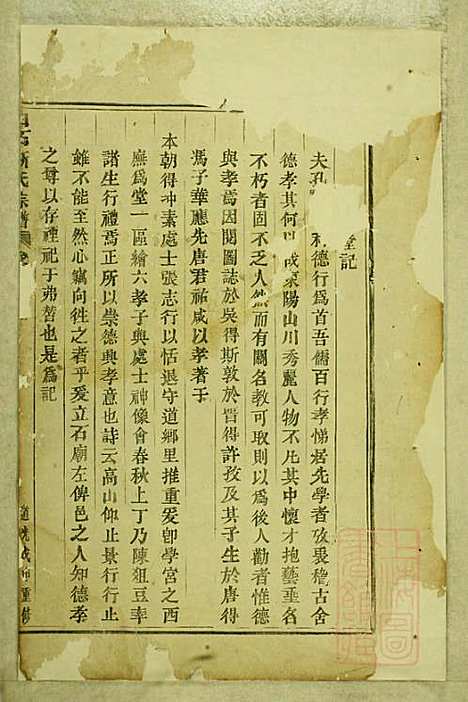 堂記
夫孔 德行爲首吾儒百行孝悌居先學者攷裘稽古舍
德孝其何以 哉東陽山川秀麗人物不凡其中懷才抱藝垂名
不朽者固不乏人然而有關名教可取則以爲後人勸者惟德
與孝焉因閱圖誌於吳得斯敦於晋得許孜及其子生於唐得
馮子華應先唐君祐咸以孝著于
本朝得冲素處士張志行以恬退守道鄉里推重爰卽學宮之西
廡爲堂一區繪六孝子與處士神像會春秋上丁乃陳俎豆率
諸生行禮焉正所以崇德與孝意也詩云高山仰止景行行止
雖不能至然心竊向徃之者乎爰立石廟左俾邑之人知德孝
之母以存禋祀于弗替也是爲記
斯氏宗譜
道光 重修